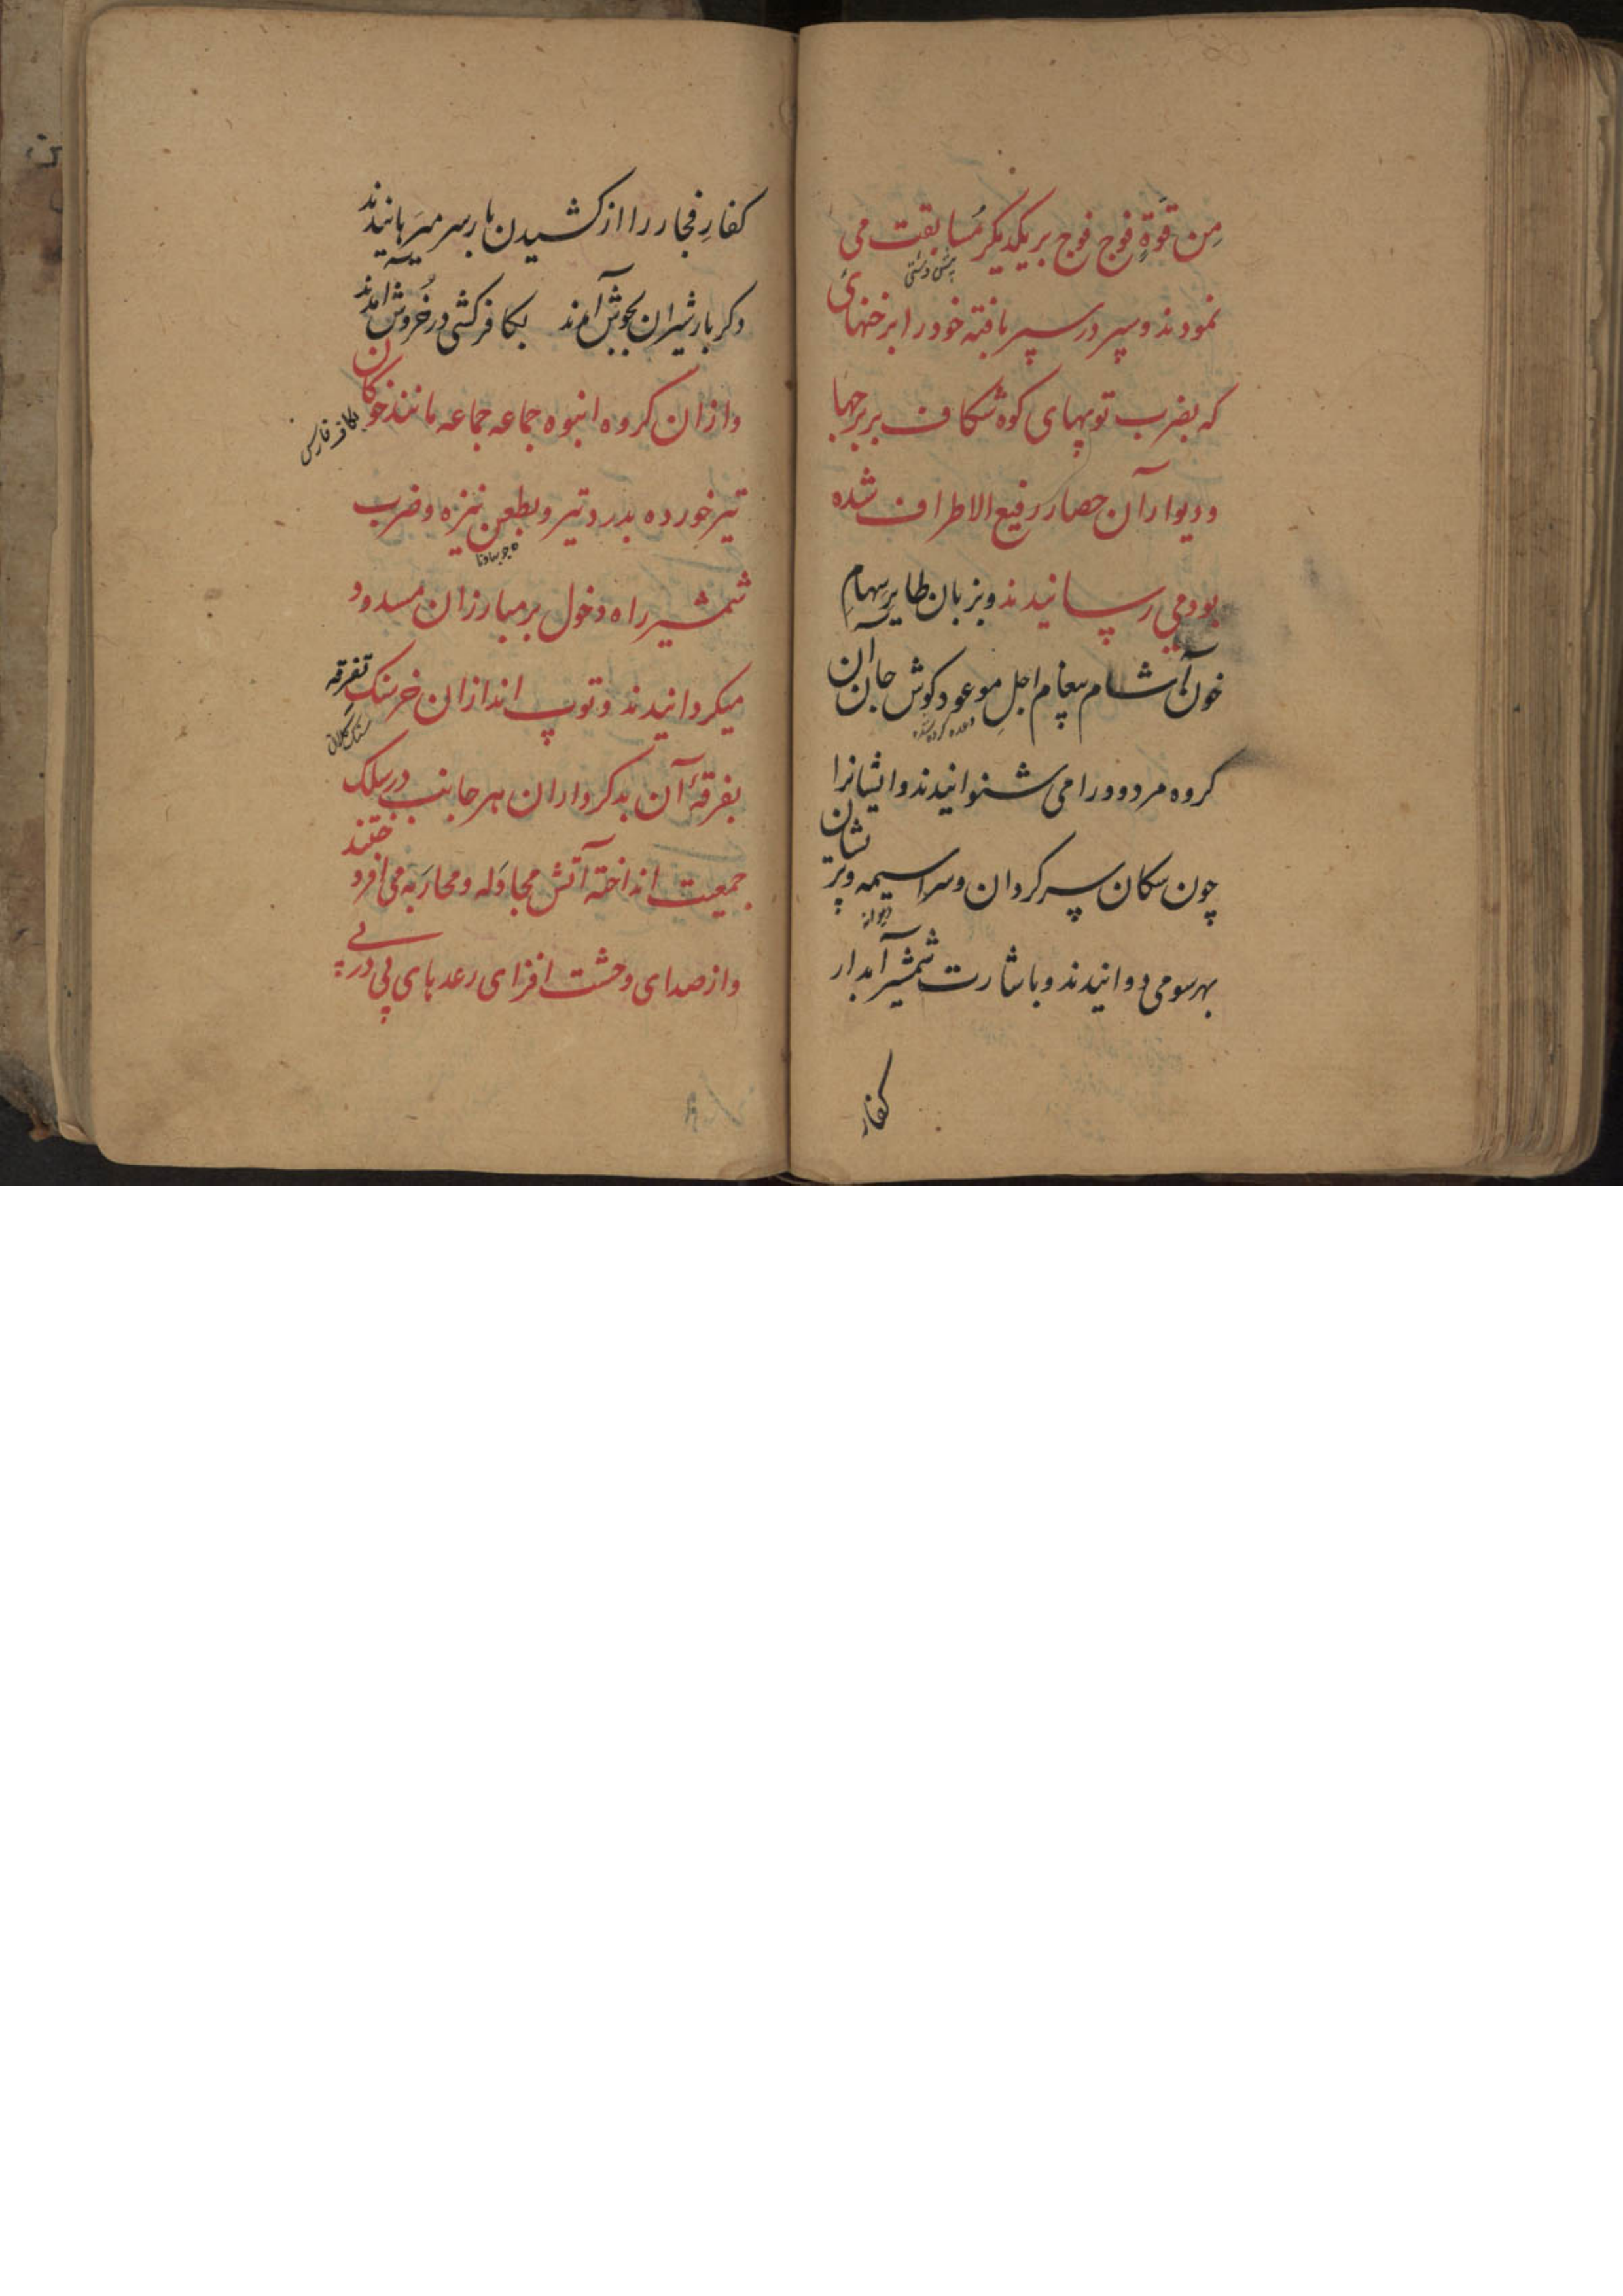 مِن قُوّةٍ فوج فوج بر یکدیکر مُسابقت می
نمودند و سپر در سپر بافته خود را برخنهائ
که بضرب توپهای کوه شکاف بر برجها
و دیوار آن حصار رفیع الاطراف شده
بود می رسانیدند و بزبان طایر سهامِ
خون آشام پیغام اجلِ موعود بکوش جان آن
وعده کرده شده
کروه مردود را می شنوانیدند و ایشانرا
چون سکان سرکردان و سراسیمه و پریشان
دیوانه
بهر سو می دوانیدند و باشارت شمشیر آبدار
کفار
کفارِ فجار را از کشیدن بار سر میرهانیدند
دکر بار شیران بجوش آمدند بکافر کشی در خُروش آمدند
و ازان کروه انبوه جماعه جماعه مانند خوکان
بکاف فارسی
تیر خورده بدرد تیر و بطعن نیزه و ضرب
شمشیر راه دخول بر مبارزان مسدود
میکردانیدند و توپ اندازان خرسنک تفرقه
سنک کلان
بفرقهٔ آن بدکرداران هر جانب در سلک
جمعیت انداخته آتش مجادَله و محاربَه می افروختند
و از صدای وحشت افزای رعدهای پی در پی